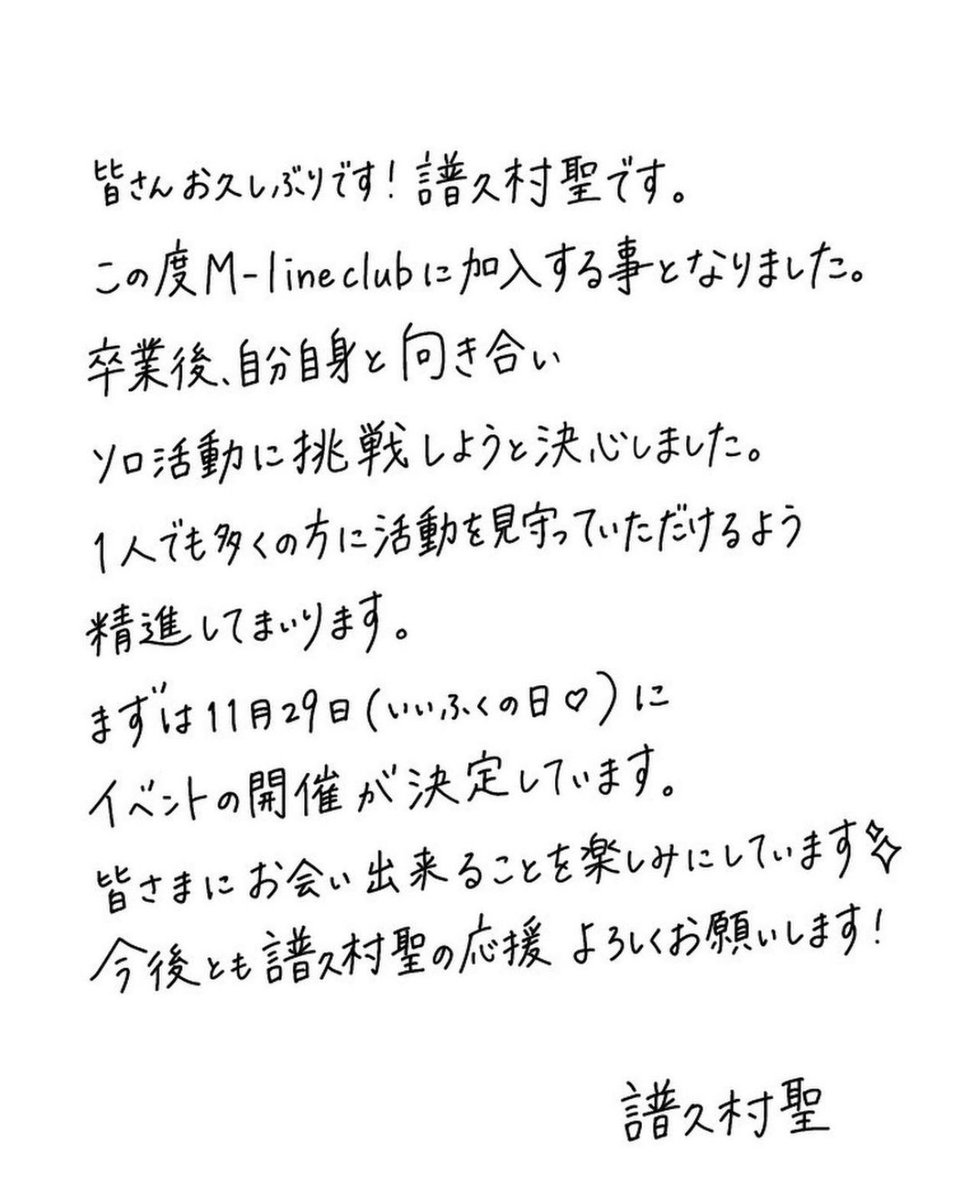 皆さんお久しぶりです！譜久村聖です。
この度M-line clubに加入する事となりました。
卒業後、自分自身と向き合い
ソロ活動に挑戦しようと決心しました。
1人でも多くの方に活動を見守っていただけるよう
精進してまいります。
まずは11月29日(いいふくの日♡)に
イベントの開催が決定しています。
皆さまにお会い出来ることを楽しみにしています✨
今後とも譜久村聖の応援よろしくお願いします！
譜久村聖